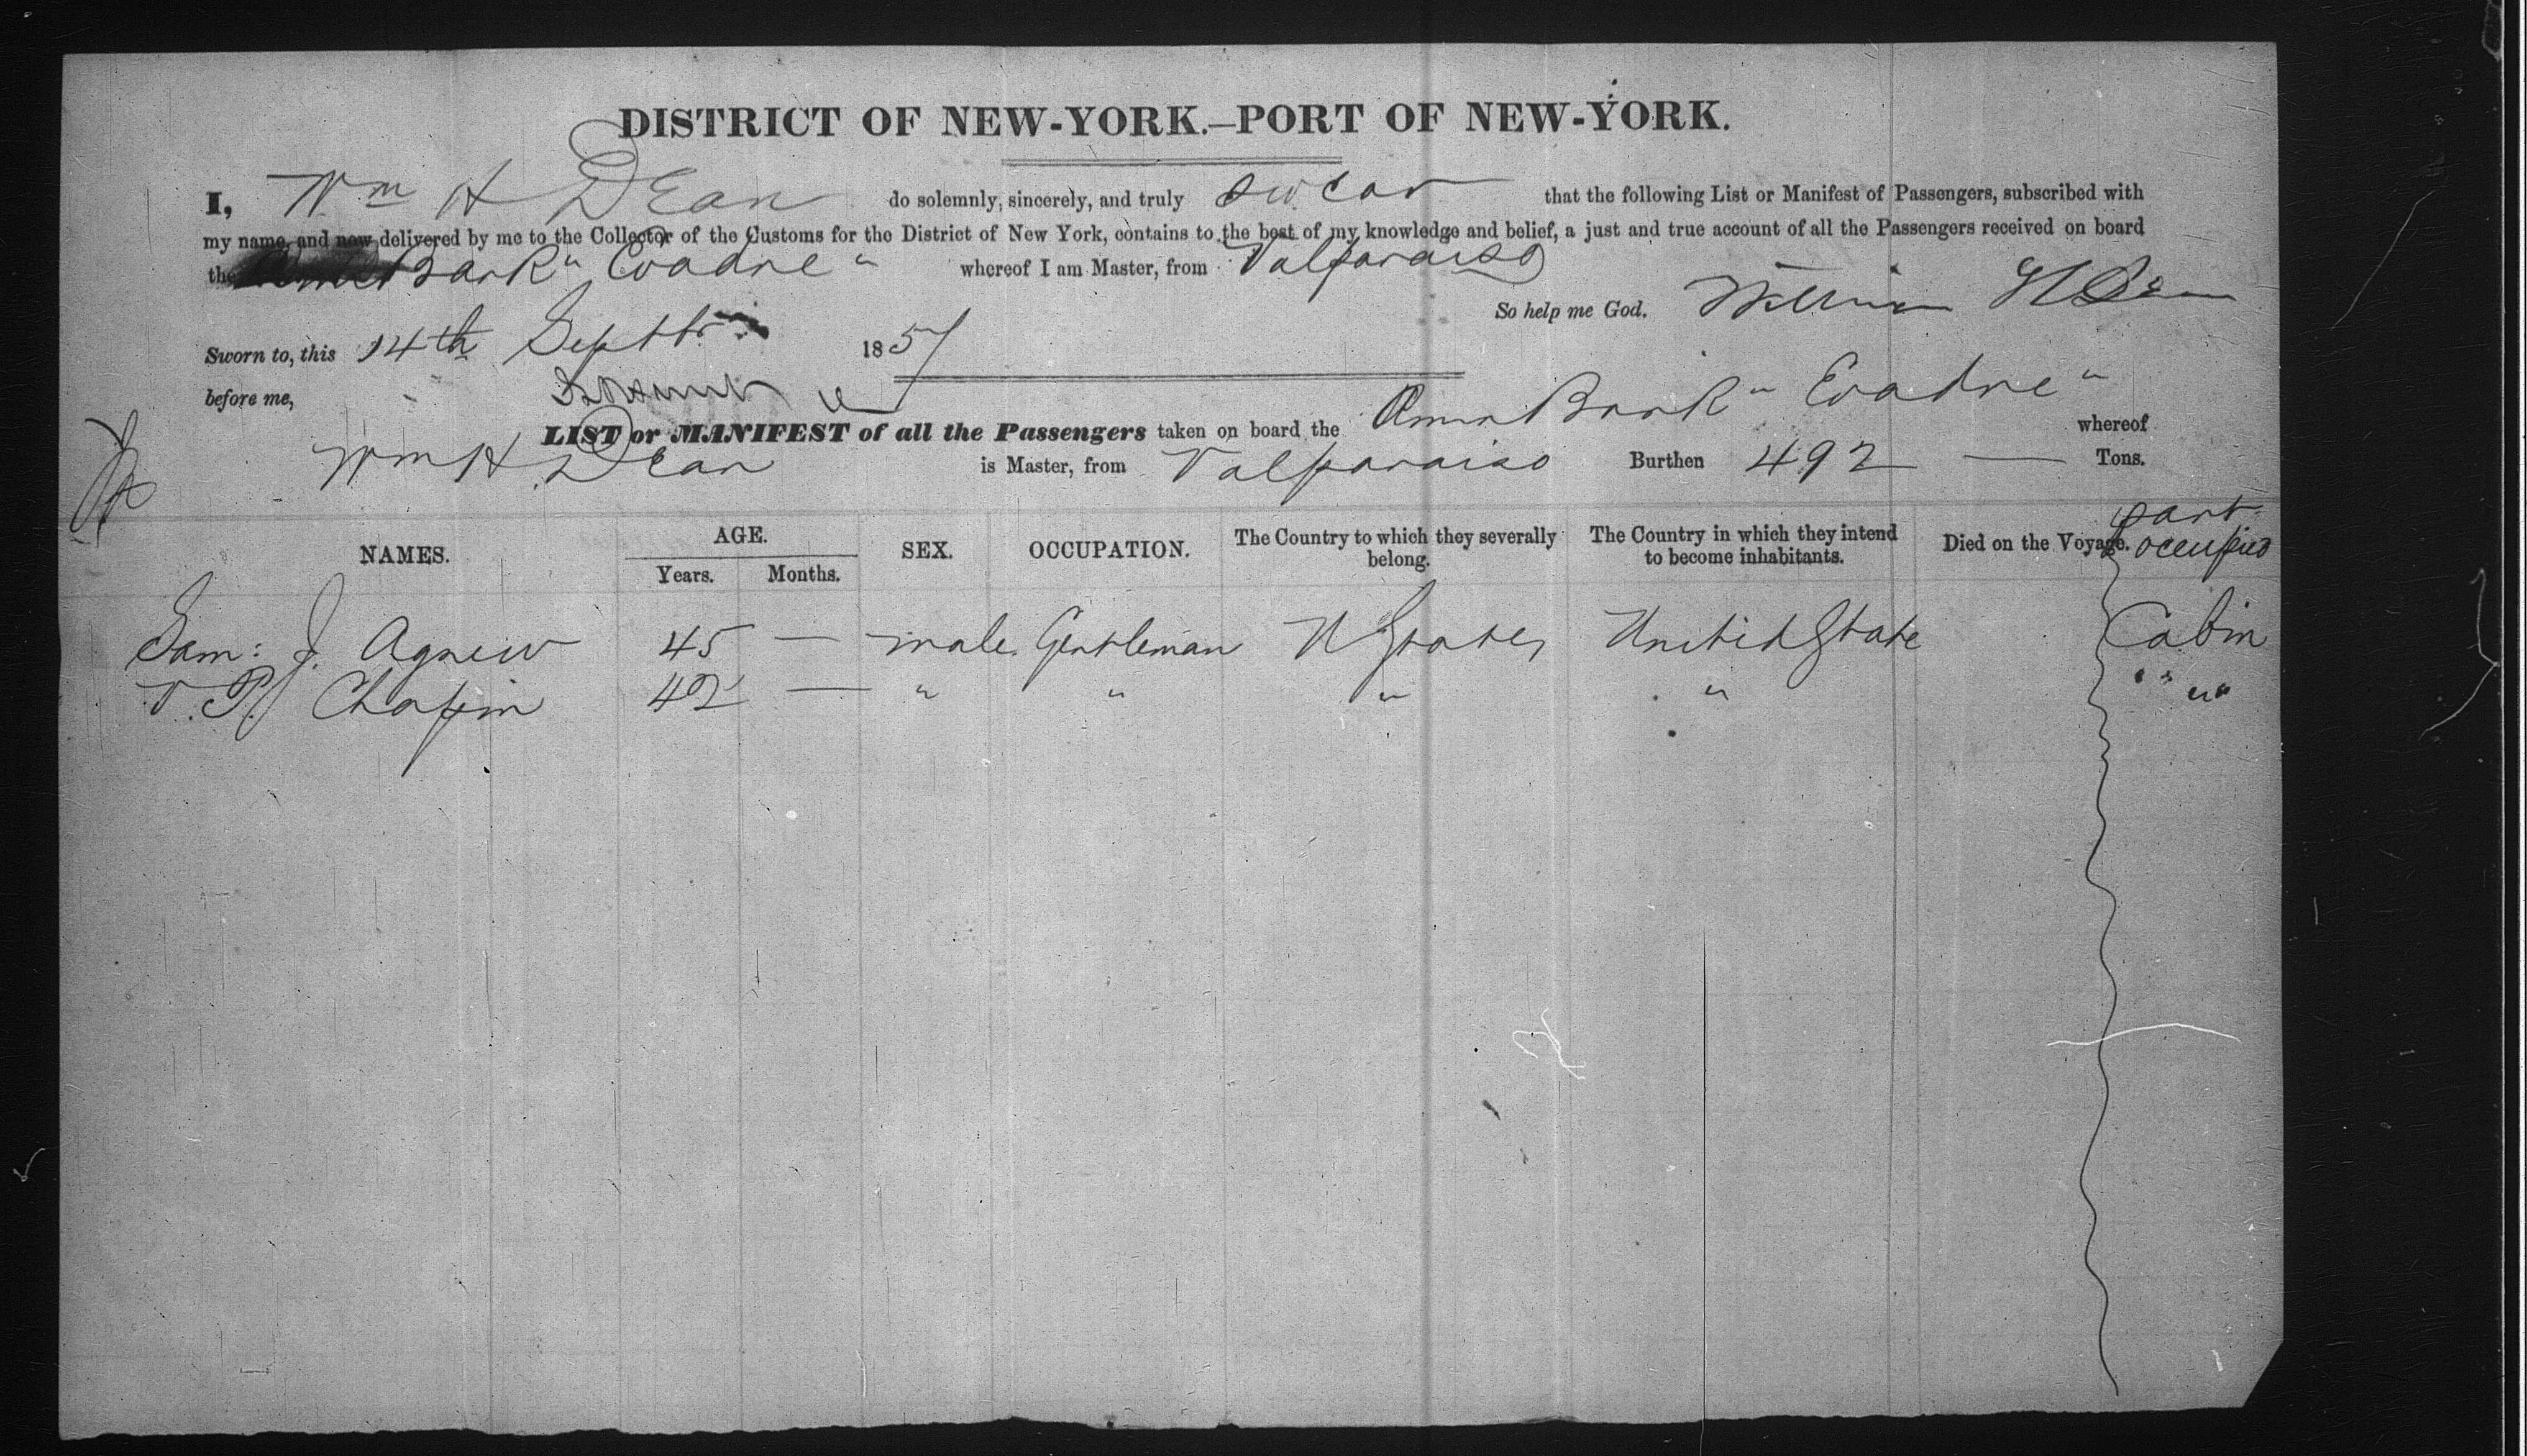 DISTRICT OF NEW-YORK.—PORT OF NEW-YORK.
I, Wm H Dean do solemnly, sincerely, and truly swear that the following List or Manifest of Passengers, subscribed with
my name, and now delivered by me to the Collector of the Customs for the District of New York, contains to the best of my knowledge and belief, a just and true account of all the Passengers received on board
the Bark "Evadne" whereof I am Master, from Valparaiso
So help me God. William H Dean
Sworn to, this 14th Septbr 1857
before me,
LIST or MANIFEST of all the Passengers taken on board the Amer Bark "Evadne" whereof
Wm H Dean is Master, from Valparaiso Burthen 492 — Tons.
NAMES. AGE. Years. Months. SEX. OCCUPATION. The Country to which they severally belong. The Country in which they intend to become inhabitants. Died on the Voyage. part occupied
Sam: J. Agnew 45 — male Gentleman U States United State Cabin
P. Chapin 42 — " " " " " "